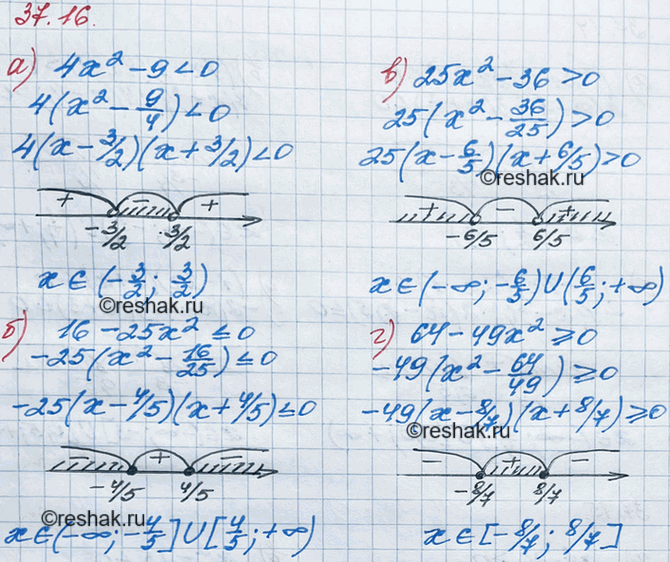 37.16.
а) 4x² - 9 < 0
4(x² - 9/4) < 0
4(x - 3/2)(x + 3/2) < 0
+ - +
-3/2 3/2
x ∈ (-3/2; 3/2)
©reshak.ru
б) 16 - 25x² ≤ 0
-25(x² - 16/25) ≤ 0
-25(x - 4/5)(x + 4/5) ≤ 0
- + -
-4/5 4/5
©reshak.ru
x ∈ (-∞; -4/5] U [4/5; +∞)
в) 25x² - 36 > 0
25(x² - 36/25) > 0
25(x - 6/5)(x + 6/5) > 0
©reshak.ru
+ - +
-6/5 6/5
x ∈ (-∞; -6/5) U (6/5; +∞)
г) 64 - 49x² ≥ 0
-49(x² - 64/49) ≥ 0
-49(x - 8/7)(x + 8/7) ≥ 0
©reshak.ru
- + -
-8/7 8/7
x ∈ [-8/7; 8/7]
©reshak.ru